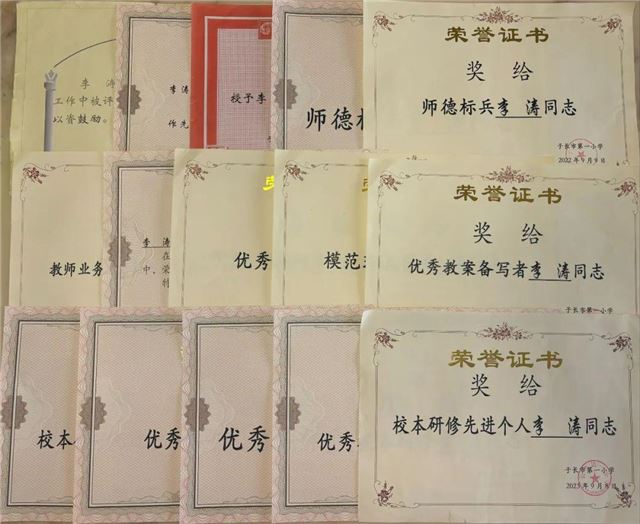 李 涛
工作中被评
以资鼓励。
李 涛
作先
授予李
师德标
荣誉证书
奖 给
师德标兵李 涛同志
子长市第一小学
2022年9月9日
教师业务
李 涛
在
中，荣
特
优秀
模范
荣誉证书
奖 给
优秀教案备写者李 涛同志
子长市第一小学
校本
优秀
优秀
优秀
荣誉证书
奖 给
校本研修先进个人李 涛同志
子长市第一小学
2023年9月8日